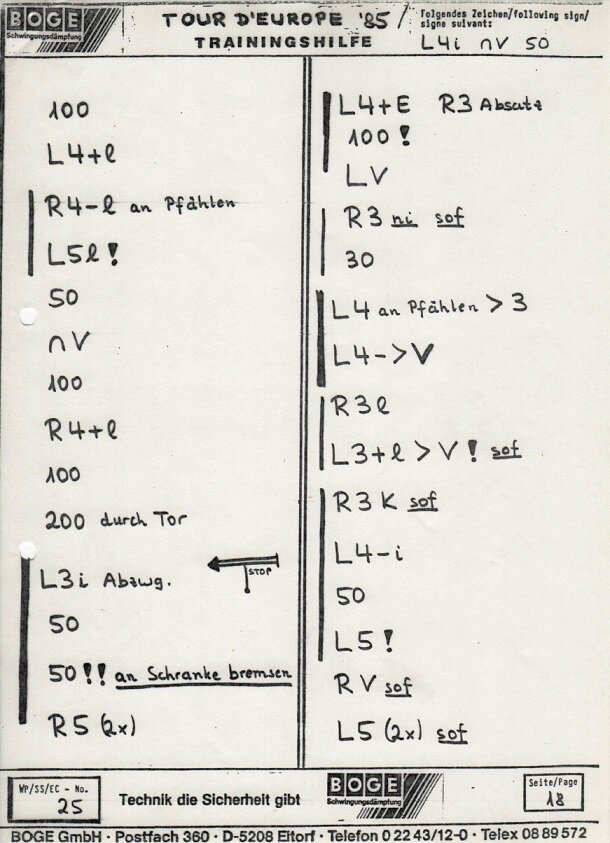 BOGE
Schwingungsdämpfung
TOUR D'EUROPE '85/
TRAININGSHILFE
Folgendes Zeichen/following sign/
signe suivant:
L4i nV 50
100
L4+l
R4-l an Pfählen
L5l!
50
nV
100
R4+l
100
200 durch Tor
L3i Abzwg.
STOP
50
50!! an Schranke bremsen
R5 (2x)
L4+E R3 Absatz
100!
LV
R3 ni sof
30
L4 an Pfählen > 3
L4->V
R3l
L3+l >V! sof
R3K sof
L4-i
50
L5!
RV sof
L5 (2x) sof
WP/SS/EC - No.
25
Technik die Sicherheit gibt
BOGE
Schwingungsdämpfung
Seite/Page
18
BOGE GmbH · Postfach 360 · D-5208 Eitorf · Telefon 0 22 43/12-0 · Telex 08 89 572